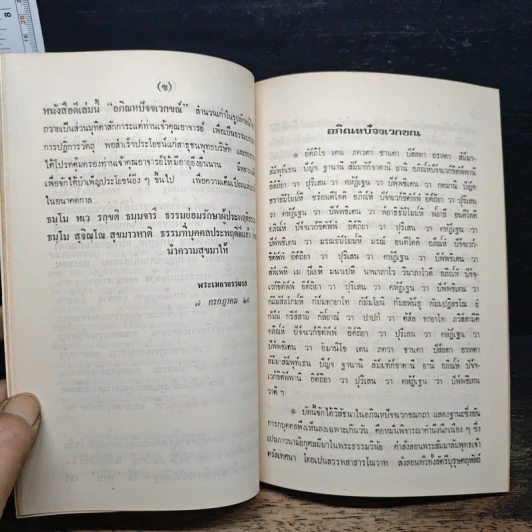 (ซ)
หนังสือดีเล่มนี้ "อภิณหปัจจเวกขณ์" สำนวนเก่าในรูป
ถวายเป็นส่วนมุทิตาสักการะแด่ท่านเจ้าคุณอาจารย์ เพื่อเป็น
การปฏิการวัตถุ พอสำเร็จประโยชน์แก่สาธุชนพุทธบริษัท
ได้โปรดคุ้มครองท่านเจ้าคุณอาจารย์ให้มีอายุยืนนาน
เพื่อจักได้บำเพ็ญประโยชน์ยิ่ง ๆ ขึ้นไป
ในอนาคตกาล
ธมฺโม หเว รกฺขติ ธมฺมจารึ ธรรมย่อมรักษาผู้ประพฤติธรรม
ธมฺโม สุจิณฺโณ สุขมาวหาติ ธรรมที่บุคคลประพฤติดีแล้ว
นำความสุขมาให้
พระเมธาธรรมรส
๗ กรกฎาคม ๒๕
อภิณหปัจจเวกขณ
๑ อิติโข เตน ภควตา ชานตา ปัสสตา อรหตา สัมมา-
สัมพุทเธน ปัญจ ฐานานิ สัมมทักขาตานิ
อิตถิยา วา ปุริเสน วา คหัฏเฐน วา ปัพพชิเตน วา กตมานิ ปัญจ
ชราธัมโมมหิ ชรํอนตีโตติ อภิณหํ ปัจจเวกขิตัพพํ
อิตถิยา วา ปุริเสน วา คหัฏเฐน วา ปัพพชิเตน วา พยาธิธัมโมมหิ พยาธึ อนตีโตติ
อภิณหํ ปัจจเวกขิตัพพํ อิตถิยา วา ปุริเสน วา คหัฏเฐน วา
ปัพพชิเตน วา มรณธัมโมมหิ มรณํ อนตีโตติ อภิณหํ ปัจจเว-
กขิตัพพํ อิตถิยา วา ปุริเสน วา คหัฏเฐน วา ปัพพชิเตน วา
สัพเพหิ เม ปิเยหิ มนาเปหิ นานาภาโว วินาภาโวติ อภิณหํ ปัจจ-
เวกขิตัพพํ อิตถิยา วา ปุริเสน วา คหัฏเฐน วา ปัพพชิเตน วา
กัมมัสสโกมหิ กัมมทายาโท กัมมโยนิ กัมมพันธุ กัมมปฏิสรโณ ยํ
กัมมํ กริสสามิ กัลยาณํ วา ปาปกํ วา ตัสส ทายาโท ภวิสสามีติ
อภิณหํ ปัจจเวกขิตัพพํ อิตถิยา วา ปุริเสน วา คหัฏเฐน วา
ปัพพชิเตน วา อิมานิโข เตน ภควตา ชานตา ปัสสตา อรหตา
สัมมาสัมพุทเธน ปัญจ ฐานานิ สัมมทักขาตานิ ยานิ อภิณหํ ปัจจ-
เวกขิตัพพานิ อิตถิยา วา ปุริเสน วา คหัฏเฐน วา ปัพพชิเตน
วาติ ฯ
๑ บัดนี้จักได้วิสัชนาในอภิณหปัจจเวกขณกถา แสดงฐานะซึ่งอัน
การกบุคคลพึงเห็นลงเฉพาะเกินวัน คือหมั่นพิจารณาคำนึงนึกเนือง ๆ ซึ่ง
เป็นภาวนามัยกุศลมีมาในพระธรรมวินัย คำสั่งสอนพระสัมมาสัมพุทธเจ้า
ตรัสเทศนา โดยเป็นสรรพสาธารโณวาท สั่งสอนทั่วทั้งสตรีบุรุษคฤหัสถ์